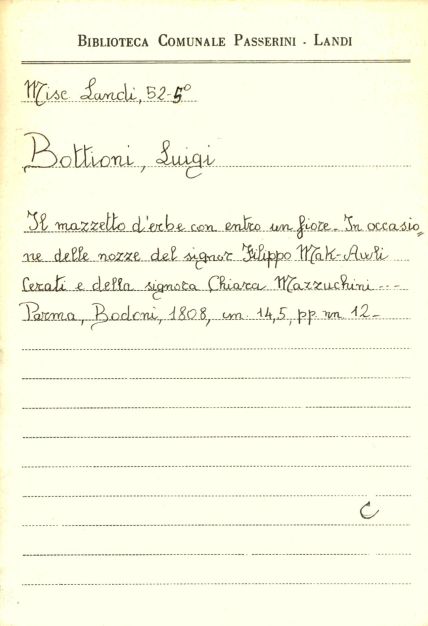 BIBLIOTECA COMUNALE PASSERINI - LANDI
Misc Landi, 52-5º
Bottioni, Luigi
Il mazzetto d'erbe con entro un fiore. In occasio=
ne delle nozze del signor Filippo Mak-Awli
Cerati e della signora Chiara Mazzuchini ---
Parma, Bodoni, 1808, cm 14,5, pp nn 12-
C